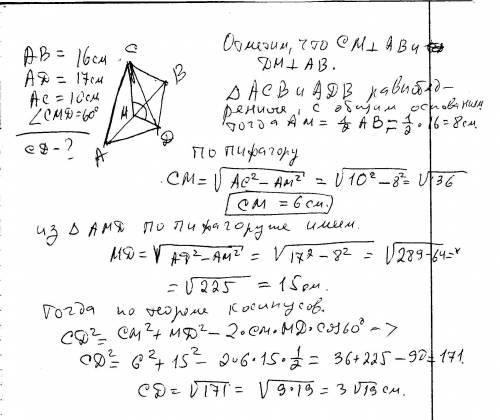 AB = 16см
AD = 17см
AC = 10см
∠CMD = 60°
CD - ?
C
B
M
D
A
Отметим, что CM⊥AB и
DM⊥AB.
△ACB и ADB равнобед-
ренные, с общим основанием
тогда AM = 1/2 AB = 1/2·16 = 8см
По пифагору
CM = √AC² - AM² = √10² - 8² = √36
CM = 6 см.
из △AMD по пифагору же имеем.
MD = √AD² - AM² = √17² - 8² = √289-64 =
= √225 = 15см.
Тогда по теореме косинусов.
CD² = CM² + MD² - 2·CM·MD·cos60° ->
CD² = 6² + 15² - 2·6·15·1/2 = 36+225-90=171.
CD = √171 = √9·19 = 3√19 см.